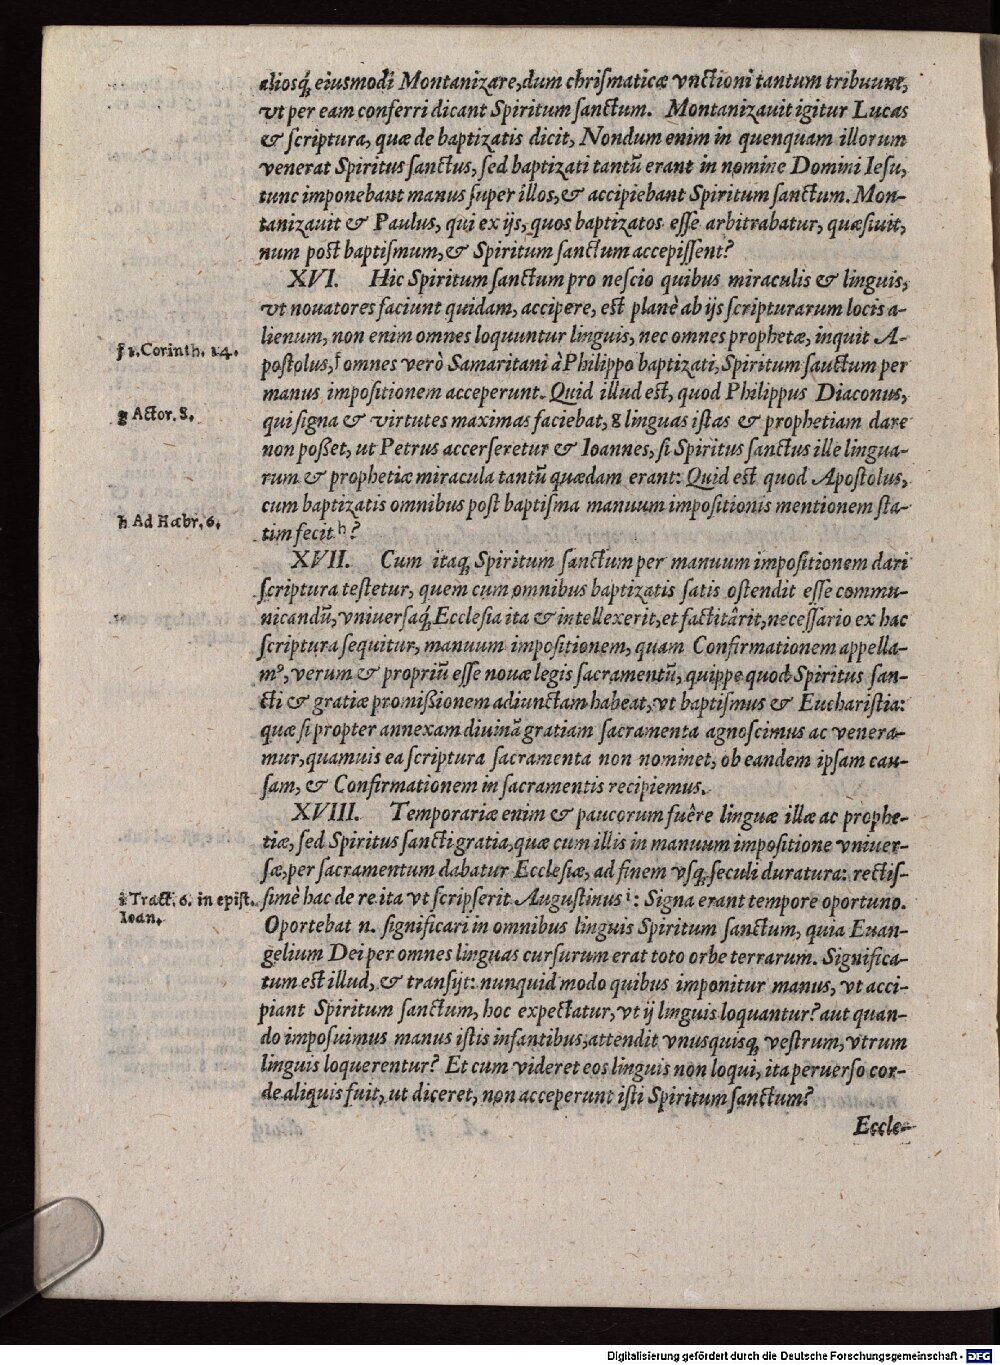 aliosq́; eiusmodi Montanizare, dum chriſmaticæ vnctioni tantum tribuunt,
vt per eam conferri dicant Spiritum ſanctum. Montanizauit igitur Lucas
& ſcriptura, quæ de baptizatis dicit, Nondum enim in quenquam illorum
venerat Spiritus ſanctus, ſed baptizati tantũ erant in nomine Domini Ieſu,
tunc imponebant manus ſuper illos, & accipiebant Spiritum ſanctum. Mon-
tanizauit & Paulus, qui ex ijs, quos baptizatos eſſe arbitrabatur, quæſiuit,
num poſt baptiſmum, & Spiritum ſanctum accepiſſent?
XVI. Hic Spiritum ſanctum pro neſcio quibus miraculis & linguis,
vt nouatores faciunt quidam, accipere, eſt planè ab ijs ſcripturarum locis a-
lienum, non enim omnes loquuntur linguis, nec omnes prophetæ, inquit A-
f 1. Corinth. 14.
poſtolus, f omnes verò Samaritani à Philippo baptizati, Spiritum ſauctum per
manus impoſitionem acceperunt. Quid illud eſt, quod Philippus Diaconus,
g Actor. 8.
qui ſigna & virtutes maximas faciebat, g linguas iſtas & prophetiam dare
non poßet, ut Petrus accerſeretur & Ioannes, ſi Spiritus ſanctus ille lingua-
rum & prophetiæ miracula tantũ quædam erant: Quid eſt quod Apoſtolus,
cum baptizatis omnibus poſt baptiſma manuum impoſitionis mentionem ſta-
h Ad Hæbr. 6.
tim fecit h?
XVII. Cum itaq; Spiritum ſanctum per manuum impoſitionem dari
ſcriptura teſtetur, quem cum omnibus baptizatis ſatis oſtendit eſſe commu-
nicandũ, vniuerſaq́; Eccleſia ita & intellexerit, et factitârit, neceſſario ex hac
ſcriptura ſequitur, manuum impoſitionem, quam Confirmationem appella-
mꝰ, verum & propriũ eſſe nouæ legis ſacramentũ, quippe quod Spiritus ſan-
cti & gratiæ promißionem adiunctam habeat, vt baptiſmus & Euchariſtia:
quæ ſi propter annexam diuinã gratiam ſacramenta agnoſcimus ac venera-
mur, quamuis ea ſcriptura ſacramenta non nominet, ob eandem ipſam cau-
ſam, & Confirmationem in ſacramentis recipiemus.
XVIII. Temporariæ enim & paucorum fuêre linguæ illæ ac prophe-
tiæ, ſed Spiritus ſancti gratia, quæ cum illis in manuum impoſitione vniuer-
ſæ, per ſacramentum dabatur Eccleſiæ, ad finem vſq; ſeculi duratura: rectiſ-
i Tract. 6. in epiſt.
Ioan.
ſimè hac de re ita vt ſcripſerit Auguſtinus i: Signa erant tempore oportuno.
Oportebat n. ſignificari in omnibus linguis Spiritum ſanctum, quia Euan-
gelium Dei per omnes linguas curſurum erat toto orbe terrarum. Significa-
tum eſt illud, & tranſijt: nunquid modo quibus imponitur manus, vt acci-
piant Spiritum ſanctum, hoc expectatur, vt ij linguis loquantur? aut quan-
do impoſuimus manus iſtis infantibus, attendit vnusquisq; veſtrum, vtrum
linguis loquerentur? Et cum videret eos linguis non loqui, ita peruerſo cor-
de aliquis fuit, ut diceret, non acceperunt iſti Spiritum ſanctum?
Eccle-
Digitalisierung gefördert durch die Deutsche Forschungsgemeinschaft - DFG